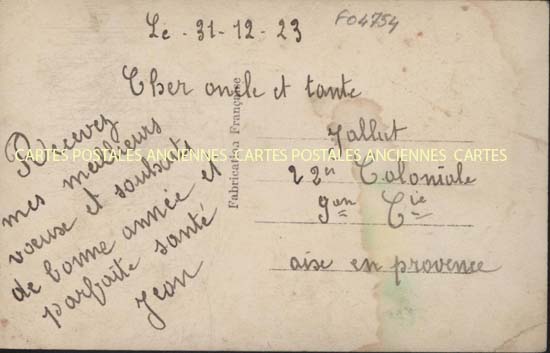 Le - 31-12-23
F04754
Cher oncle et tante
Recevez
mes meilleurs
voeuse et souhaits
de bonne année et
parfaite santé
Jean
Fabrication Française
Jallut
22en Coloniale
9en Cie
aise en provence
CARTES POSTALES ANCIENNES CARTES POSTALES ANCIENNES CARTES